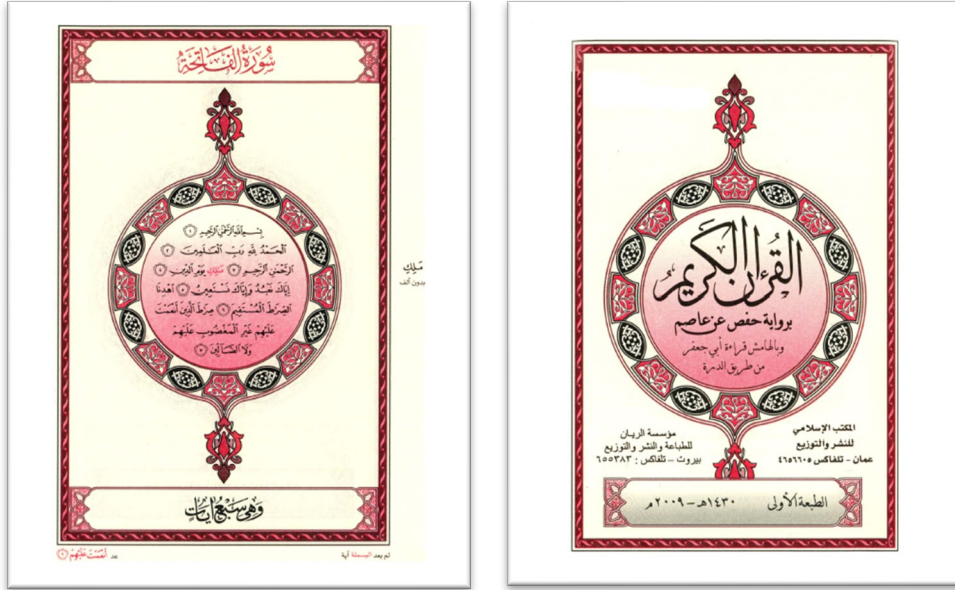 القُرآن الكَرِيم
برواية حفص عن عاصم
وبالهامش قراءة أبي جعفر
من طريق الدرة
المكتب الإسلامي
للنشر والتوزيع
عمان - تلفاكس ٤٦٥٦٦٠٥
مؤسسة الريان
للطباعة والنشر والتوزيع
بيروت - تلفاكس : ٦٥٥٣٨٣
الطبعة الأولى ١٤٣٠هـ - ٢٠٠٩م
سُورَةُ الفَاتِحَةِ
بِسْمِ ٱللَّهِ ٱلرَّحْمَٰنِ ٱلرَّحِيمِ ١
ٱلْحَمْدُ لِلَّهِ رَبِّ ٱلْعَٰلَمِينَ ٢
ٱلرَّحْمَٰنِ ٱلرَّحِيمِ ٣ مَٰلِكِ يَوْمِ ٱلدِّينِ ٤
إِيَّاكَ نَعْبُدُ وَإِيَّاكَ نَسْتَعِينُ ٥ ٱهْدِنَا
ٱلصِّرَٰطَ ٱلْمُسْتَقِيمَ ٦ صِرَٰطَ ٱلَّذِينَ أَنْعَمْتَ
عَلَيْهِمْ غَيْرِ ٱلْمَغْضُوبِ عَلَيْهِمْ
وَلَا ٱلضَّآلِّينَ ٧
مَلِكِ
بدون ألف
وَهِيَ سَبْعُ آيَاتٍ
لم يعد البسملة آية
عد أَنْعَمْتَ عَلَيْهِمْ